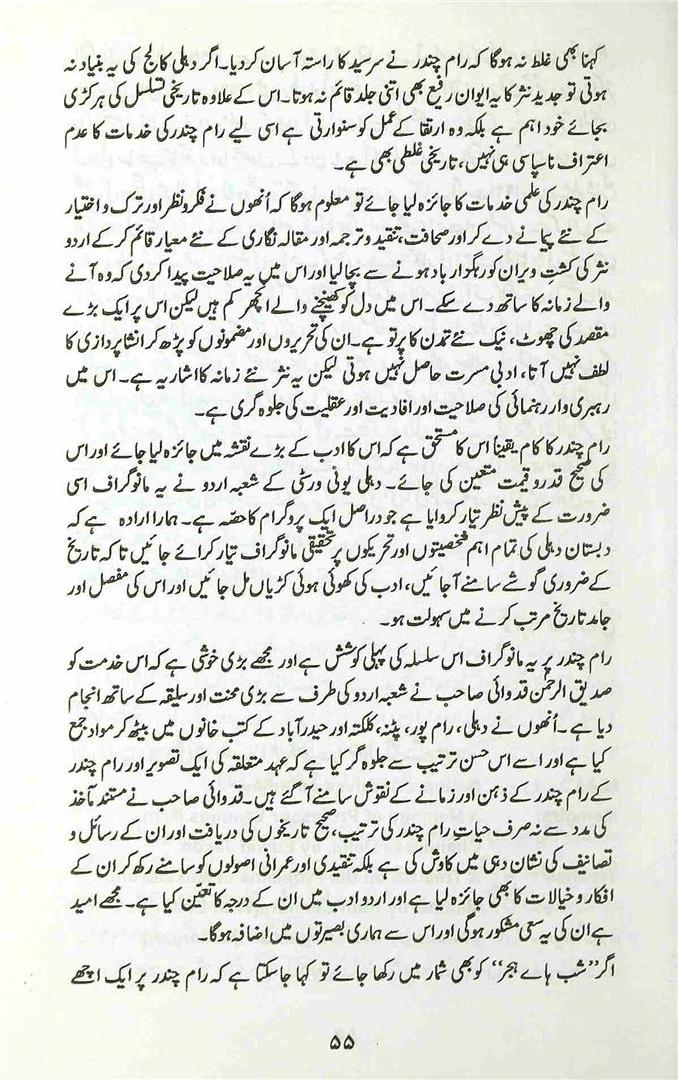 کہنا بھی غلط نہ ہوگا کہ رام چندر نے سرسید کا راستہ آسان کردیا۔ اگر دہلی کالج کی یہ بنیاد نہ
ہوتی تو جدید نثر کا یہ ایوان رفیع بھی اتنی جلد قائم نہ ہوتا۔ اس کے علاوہ تاریخی تسلسل کی ہر کڑی
بجائے خود اہم ہے بلکہ وہ ارتقا کے عمل کو سنوارتی ہے اسی لیے رام چندر کی خدمات کا عدم
اعتراف ناسپاسی ہی نہیں، تاریخی غلطی بھی ہے۔
رام چندر کی علمی خدمات کا جائزہ لیا جائے تو معلوم ہوگا کہ اُنھوں نے فکر و نظر اور ترک و اختیار
کے نئے پیمانے دے کر اور صحافت، تنقید و ترجمہ اور مقالہ نگاری کے نئے معیار قائم کر کے اردو
نثر کی کشتِ ویران کو رہگزار باد ہونے سے بچالیا اور اس میں یہ صلاحیت پیدا کردی کہ وہ آنے
والے زمانہ کا ساتھ دے سکے۔ اس میں دل کو کھینچنے والے اچھر کم ہیں لیکن اس پر ایک بڑے
مقصد کی چھوٹ، نیک نئے تمدن کا پرتو ہے۔ ان کی تحریروں اور مضمونوں کو پڑھ کر انشا پردازی کا
لطف نہیں آتا، ادبی مسرت حاصل نہیں ہوتی لیکن یہ نثر نئے زمانہ کا اشاریہ ہے۔ اس میں
رہبری وار رہنمائی کی صلاحیت اور افادیت اور عقلیت کی جلوہ گری ہے۔
رام چندر کا کام یقیناً اس کا مستحق ہے کہ اس کا ادب کے بڑے نقشہ میں جائزہ لیا جائے اور اس
کی صحیح قدر و قیمت متعین کی جائے۔ دہلی یونی ورسٹی کے شعبہ اردو نے یہ مانوگراف اسی
ضرورت کے پیش نظر تیار کروایا ہے جو دراصل ایک پروگرام کا حصّہ ہے۔ ہمارا ارادہ ہے کہ
دبستان دہلی کی تمام اہم شخصیتوں اور تحریکوں پر تحقیقی مانوگراف تیار کرائے جائیں تاکہ تاریخ
کے ضروری گوشے سامنے آجائیں، ادب کی کھوئی ہوئی کڑیاں مل جائیں اور اس کی مفصل اور
جامد تاریخ مرتب کرنے میں سہولت ہو۔
رام چندر پر یہ مانوگراف اس سلسلہ کی پہلی کوشش ہے اور مجھے بڑی خوشی ہے کہ اس خدمت کو
صدیق الرحمٰن قدوائی صاحب نے شعبہ اردو کی طرف سے بڑی محنت اور سلیقہ کے ساتھ انجام
دیا ہے۔ اُنھوں نے دہلی، رام پور، پٹنہ، کلکتہ اور حیدرآباد کے کتب خانوں میں بیٹھ کر مواد جمع
کیا ہے اور اسے اس حسن ترتیب سے جلوہ گر کیا ہے کہ عہد متعلقہ کی ایک تصویر اور رام چندر
کے رام چندر کے ذہن اور زمانے کے نقوش سامنے آگئے ہیں۔ قدوائی صاحب نے مستند مآخذ
کی مدد سے نہ صرف حیاتِ رام چندر کی ترتیب، صحیح تاریخوں کی دریافت اور ان کے رسائل و
تصانیف کی نشان دہی میں کاوش کی ہے بلکہ تنقیدی اور عمرانی اصولوں کو سامنے رکھ کر ان کے
افکار و خیالات کا بھی جائزہ لیا ہے اور اردو ادب میں ان کے درجہ کا تعیّن کیا ہے۔ مجھے امید
ہے ان کی یہ سعی مشکور ہوگی اور اس سے ہماری بصیرتوں میں اضافہ ہوگا۔
اگر ”شب ہاے ہجر“ کو بھی شمار میں رکھا جائے تو کہا جاسکتا ہے کہ رام چندر پر ایک اچھے
۵۵